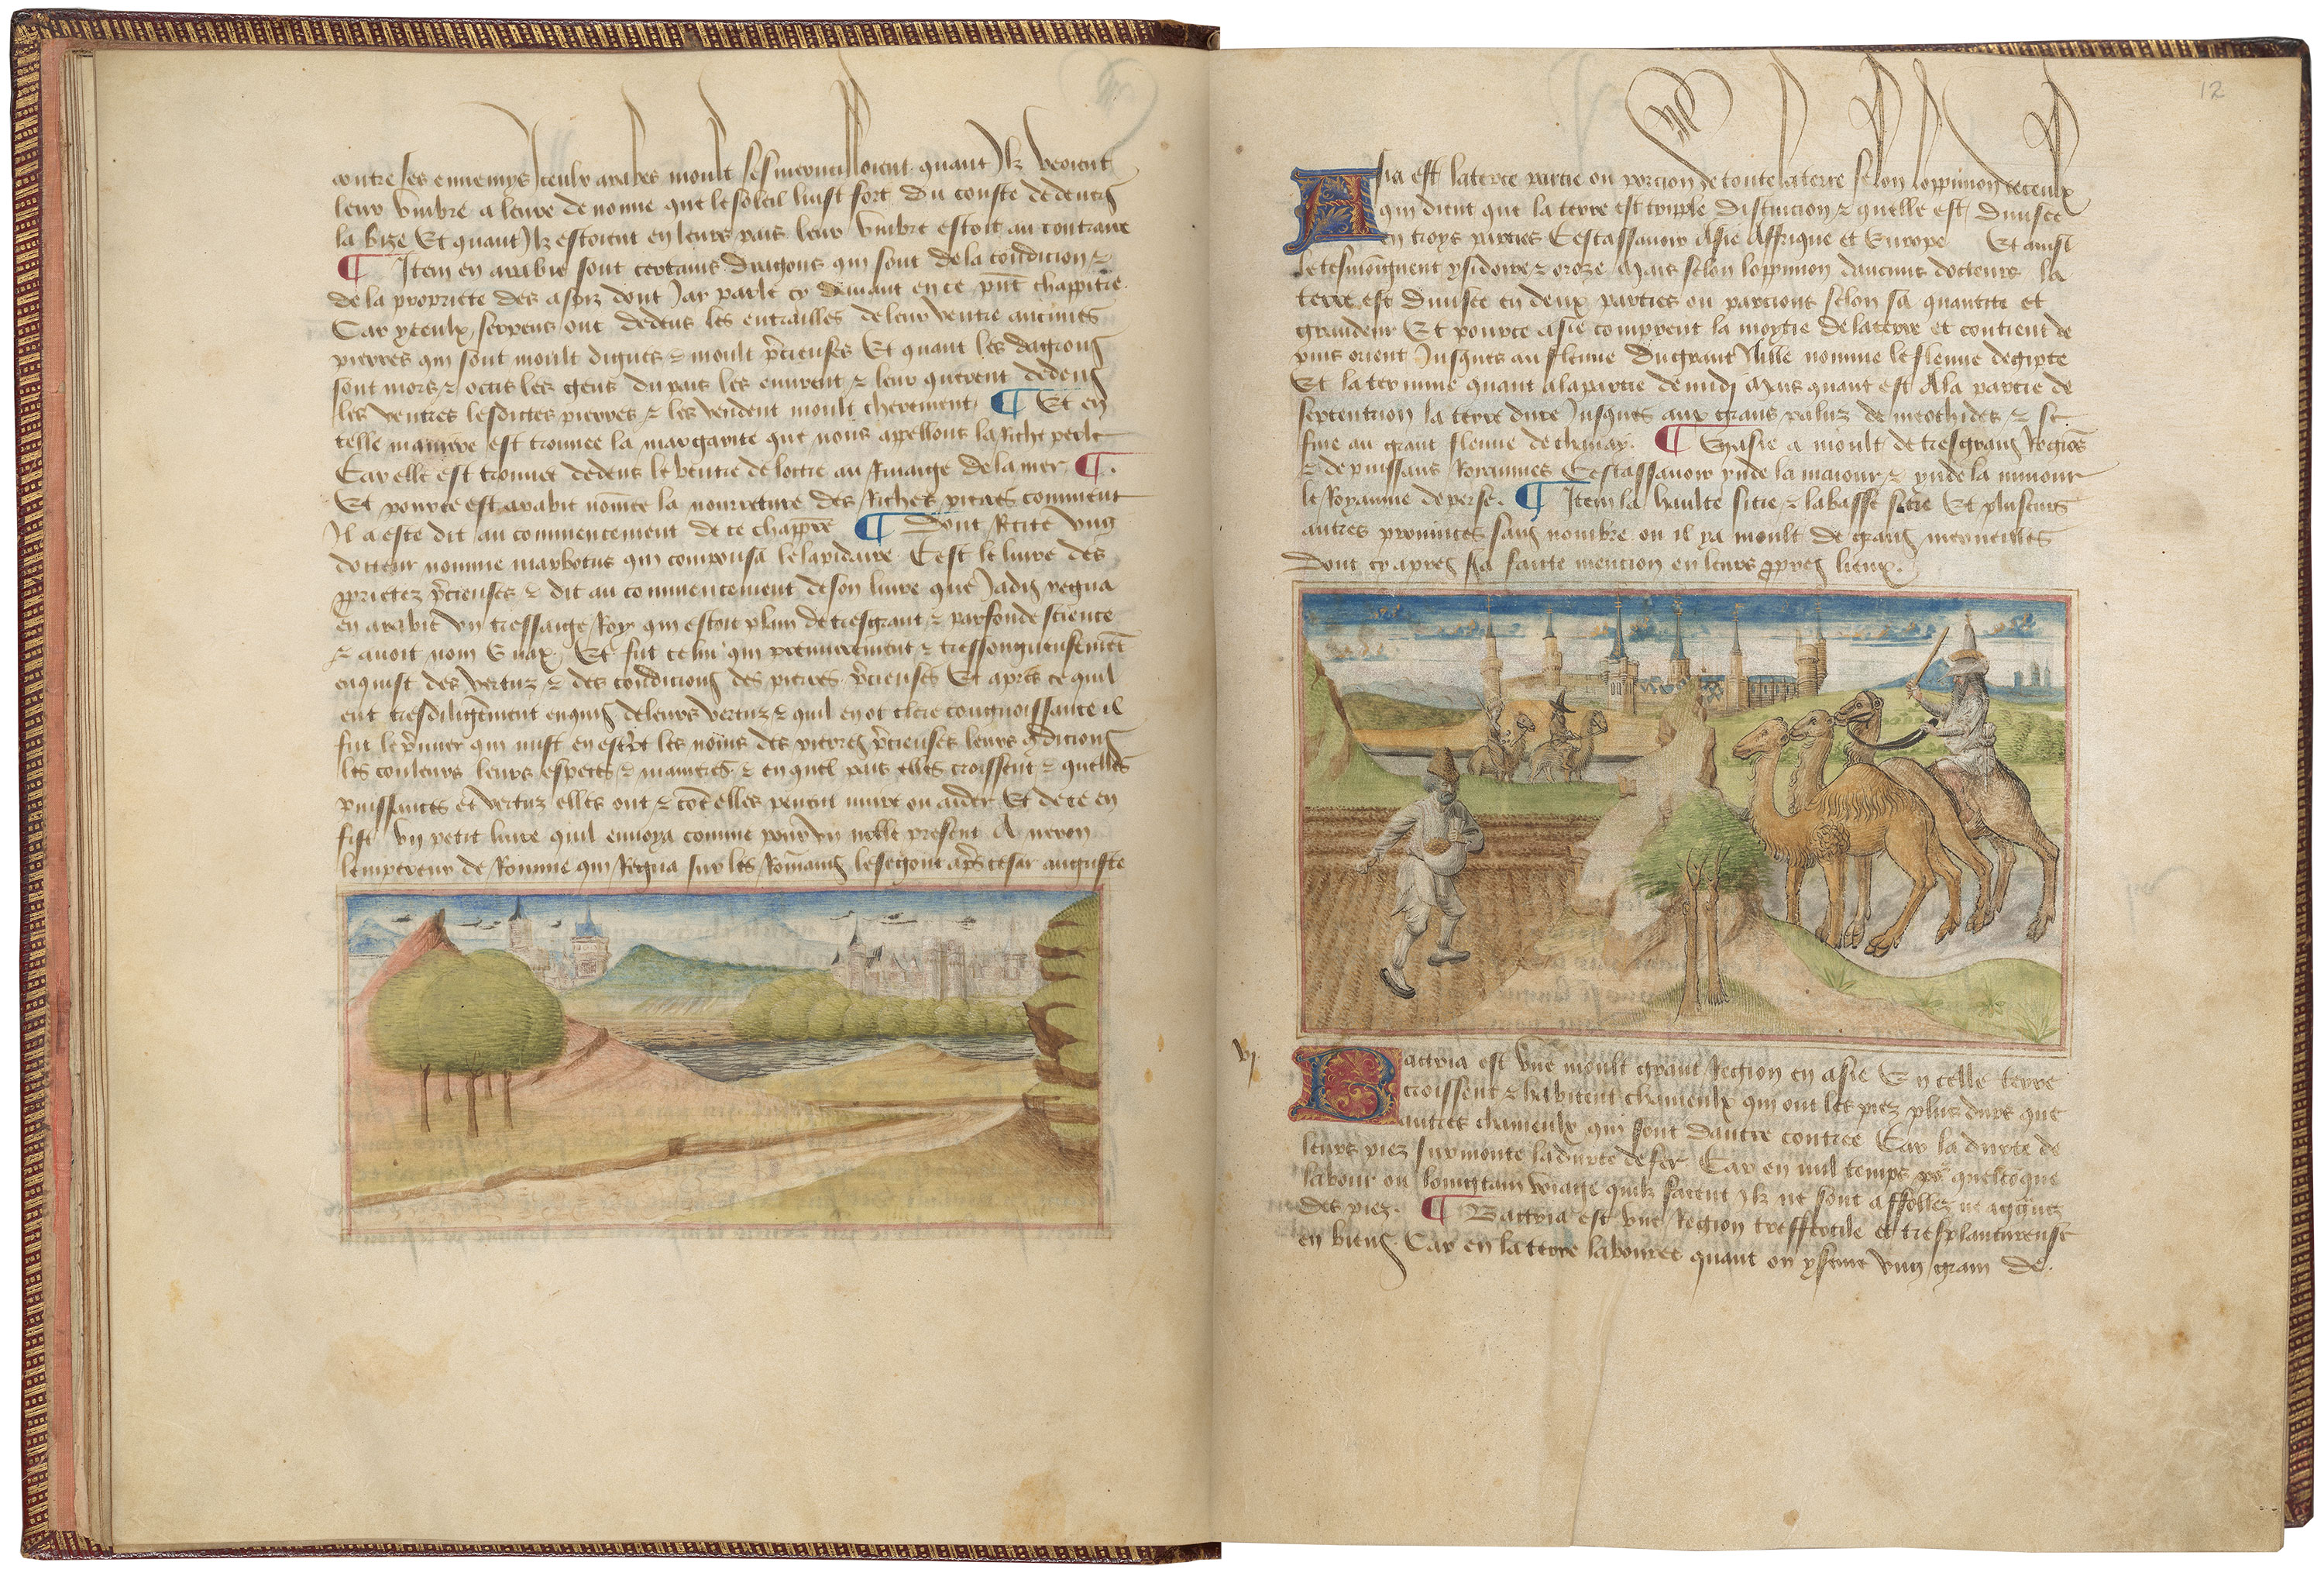 contre les ennemys Iceulx arabes moult sesmerveilloient quant Ilz veoient
leur umbre a leure de nonne que le soleil luist fort du couste de devers
la bize Et quant Ilz estoient en leurs pais leur umbre estoit au contraire
¶ Item en arabie sont certains dragons qui sont de la condicion et
de la propriete des aspiz dont Jay parle cy devant en ce pñt chappitre
Car yceulx serpens ont dedens les entrailles de leur ventre aucunes
pierres qui sont moult dignes et moult p̃cieuses Et quant les dragons
sont mors et occis les gens du pais les euvrent et leur quierent dedens
les ventres lesdictes pierres et les vendent moult cherement ¶ Et en
telle maniere est trouvee la margarite que nous appellons la Riche perle
Car elle est trouvee dedens le ventre de loctre au Rivaige de la mer ¶
Et pource est arabie nõmee la nourreture des Riches pierres comment
Il a este dit au commencement de ce chappre ¶ Dont Recite ung
docteur nomme marbotus qui compousa le lapidaire Cest le livre des
pprietez p̃cieuses et dit au commencement de son livre que Jadis regna
en arabie un tressaige Roy qui estoit plain de tresgrant et parfonde science
et avoit nom Evax Et fut celui qui premierement et tressongneusemẽt
enquist des vertuz et des condicions des pierres p̃cieuses Et apres ce quil
eut tresdiligẽment enquis de leurs vertuz et quil en ot clere congnoissance il
fut le p̃mier qui mist en escript les noms des pierres p̃cieuses leurs 9dicions
les couleurs leurs especes et manieres et en quel pais elles croissent et quelles
puissances et vertuz elles ont et cõe elles pevent nuire ou aider Et de ce en
fist un petit livre quil envoya comme pour un noble present A neron
lempereur de Romme qui Regna sur les Rommains le segont aps cesar auguste
12
Asia est la tierce partie ou porcion de toute la terre selon loppinion de ceulx
qui dient que la terre est triple distinction et quelle est divisee
en troys parties Cestassavoir Asie Affrique et Europe Et ainsi
le tesmoingnent ysidoire et oroze Mais selon loppinion daucuns docteurs la
terre est divisee en deux parties ou parcions selon sa quantite et
grandeur Et pource asie comprent la moytie de la terre et contient de
puis orient Jusques au fleuve du grant Nille nomme le fleuve degipte
Et la termine quant a la partie de midi Mais quant est A la partie de
septentrion la terre dure Jusques aux grans paluz de meothides et se
fine au grant fleuve de thanay. ¶ En asie a moult de tresgrans Regions
et de puissans Royaumes Cestassavoir ynde la maiour et ynde la minour
le Royaume de perse. ¶ Item la haulte sirie et la basse sirie Et pluseurs
autres provinces sans nombre ou il ya moult de grans merveilles
Dont cy apres sera faitte mencion en leurs ppres lieux.
vj.
Bactria est une moult grant Region en asie En celle terre
croissent et habitent chameulx qui ont les piez plus durs que
autres chameulx qui sont dautre contree Car la durte de
leurs piez surmonte la durte de fer Car en nul temps pr quelcõque
labour ou loingtain voiage quilz facent Ilz ne sont affollez ne
des piez. ¶ Bactria est une Region tresfertile et tresplantureuse
en biens. Car en la terre labouree quant on y seme ung grain de